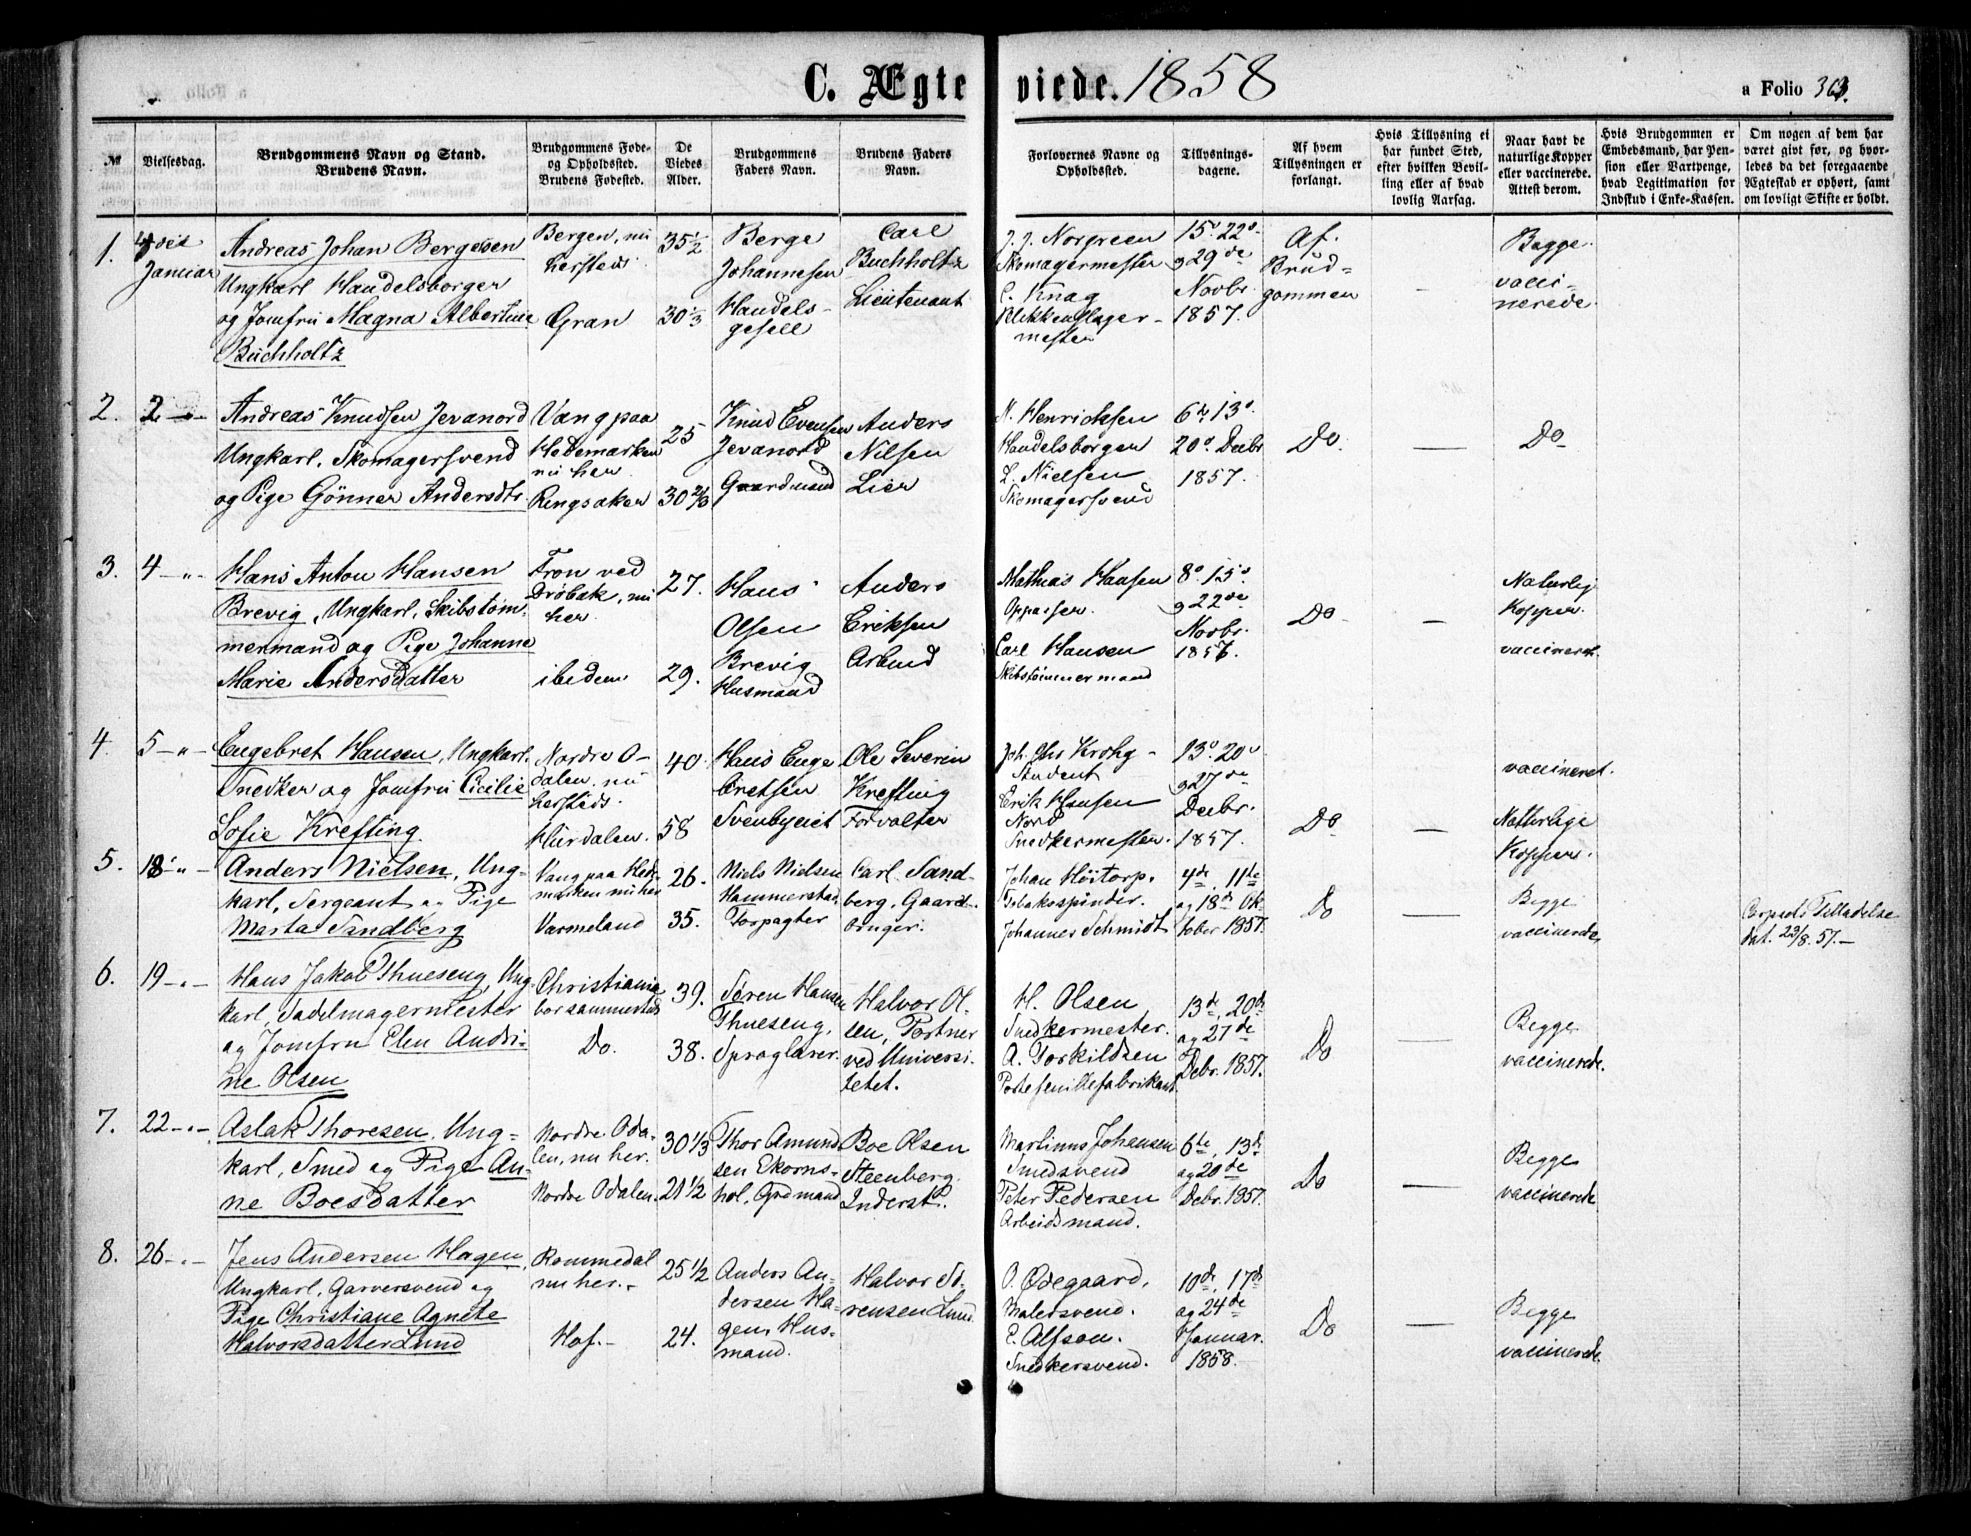 C. Ægteviede. 1858
a Folio 363.
№
Vielsesdag.
Brudgommens Navn og Stand.
Brudens Navn.
Brudgommens Føde-
og Opholdssted.
Brudens Fødested.
De
Viedes
Alder.
Brudgommens
Faders Navn.
Brudens Faders
Navn.
Forlovernes Navne og
Opholdssted.
Tillysnings-
dagene.
Af hvem
Tillysningen er
forlangt.
Hvis Tillysning ei
har fundet Sted,
efter hvilken Bevil-
ling eller af hvad
lovlig Aarsag.
Naar havt de
naturlige Kopper
eller vaccinerede.
Attest derom.
Hvis Brudgommen er
Embedsmand, har Pen-
sion eller Vartpenge,
hvad Legitimation for
Indskud i Enke-Kassen.
Om nogen af dem har
været gift før, og hvor-
ledes da det foregaaende
Ægteskab er ophørt, samt
om lovligt Skifte er holdt.
1.
Januar
Andreas Johan Bergesen
Ungkarl Handelsborger
og Jomfru Magna Albertine
Buchholtz
Bergen, nu
hersteds
Gran
35 1/2
30 1/3
Berge
Johannesen
Handels-
gesell
Carl
Buchholtz
Lieutenant
J. J. Norgreen
Skomagermester
C. Knag
Blikkenslager-
mester
15o 22o
g 29de
Novbr.
1857.
Af
Brud-
gommen
-
Begge
vacci-
nerede
2.
2 -"-
Andreas Knudsen Jevanord
Ungkarl, Skomagersvend
og Pige Gönner Andersdtr.
Vang paa
Hedemarken
nu her
Ringsaker
25
30 2/3
Knud Evensen
Jevanord
Gaardmand
Anders
Nilsen
Lier
N. Henricksen
Handelsborger
L. Nielsen
Skomagersvend
6te 13o
20o Decbr
1857.
Do.
—
Do
3.
4 -"-
Hans Anton Hansen
Brevig, Ungkarl, Skibstøm-
mermand og Pige Johanne
Marie Andersdatter
Fron ved
Drøbak, nu
her
ibedem
27.
29.
Hans
Olsen
Brevig
Husmand
Anders
Eriksen
Mathias Hansen
Oppasser.
Carl Hansen
Skibstömmermand
8o 15o
g 22de
Novbr.
1857.
Do
-
Naturlig
Kopper
vaccineret
4.
5 -"-
Engebret Hansen, Ungkarl,
Snedker og Jomfru Cicilie
Sofie Krefting
Nordre O-
dalen, nu
hersteds.
Hurdalen.
40
58
Hans Enge
bretsen
Svenbyeiet
Ole Severin
Krefting
Forvalter
Joh. Chr Krohg -
Student
Erik Hansen
Nord
Snedkermester.
13o 20o
g 27de
Decbr.
1857.
Do
—
vaccineret.
Natturlige
Kopper.
5.
18 -"-
Anders Nielsen, Ung-
karl, Sergeant og Pige
Marta Sandberg
Vang paa Hed-
marken nu her
Varmeland
26.
35.
Niels Nielsen
Hammerstad
Forpagter
Carl Sand-
berg, Gaard-
bruger.
Johan Höitorp.
Tobaksspinder.
Johannes Schmidt
4de, 11te
og 18de Ok-
tober 1857.
Do
—
Begge
vaccinerede
Corpsets Tilladelse
dat. 23/8. 57.-
6.
19 -"-
Hans Jakob Thueseng, Ung-
karl, Sadelmagermester
og Jomfru Elen Andri-
ne Olsen
Christiania
bor sammesteds
Do.
39.
38.
Søren Hansen
Thueseng,
Sproglærer.
Halvor Ol-
sen, Portner
ved Universi-
tetet.
H. Olsen
Snedkermester.
A. Torkildsen
Portefeuillefabrikant
13de, 20de
og 27de
Debr. 1857.
Do
—
Begge
vaccinerede.
7.
22 -"-
Aslak Thoresen, Ung-
karl, Smed og Pige An-
ne Boesdatter
Nordre Oda-
len, nu her.
Nordre Odalen.
30 1/3
21 1/2
Thor Amund
sen Ekorns-
hol, Grdmand
Boe Olsen
Steenberg.
Inderst.
Martinus Johansen
Smedsvend
Peter Pedersen
Arbeidsmand.
6te, 13de
og 20de
Debr. 1857.
Do
—
Begge
vaccinerede
8.
26 -"-
Jens Andersen Hagen,
Ungkarl, Garversvend og
Pige Christiane Agnete
Halvorsdatter Lund
Rommedal
nu her.-
Hof.-
25 1/2
24.
Anders An-
dersen Ha-
gen, Hus-
mand.
Halvor So-
rensen Lund
O. Ødegaard,
Malersvend.
C. Alfson.
Snedkersvend.
10de, 17de
og 24de
Januar.
1858.
Do
—
Begge
vaccinerede